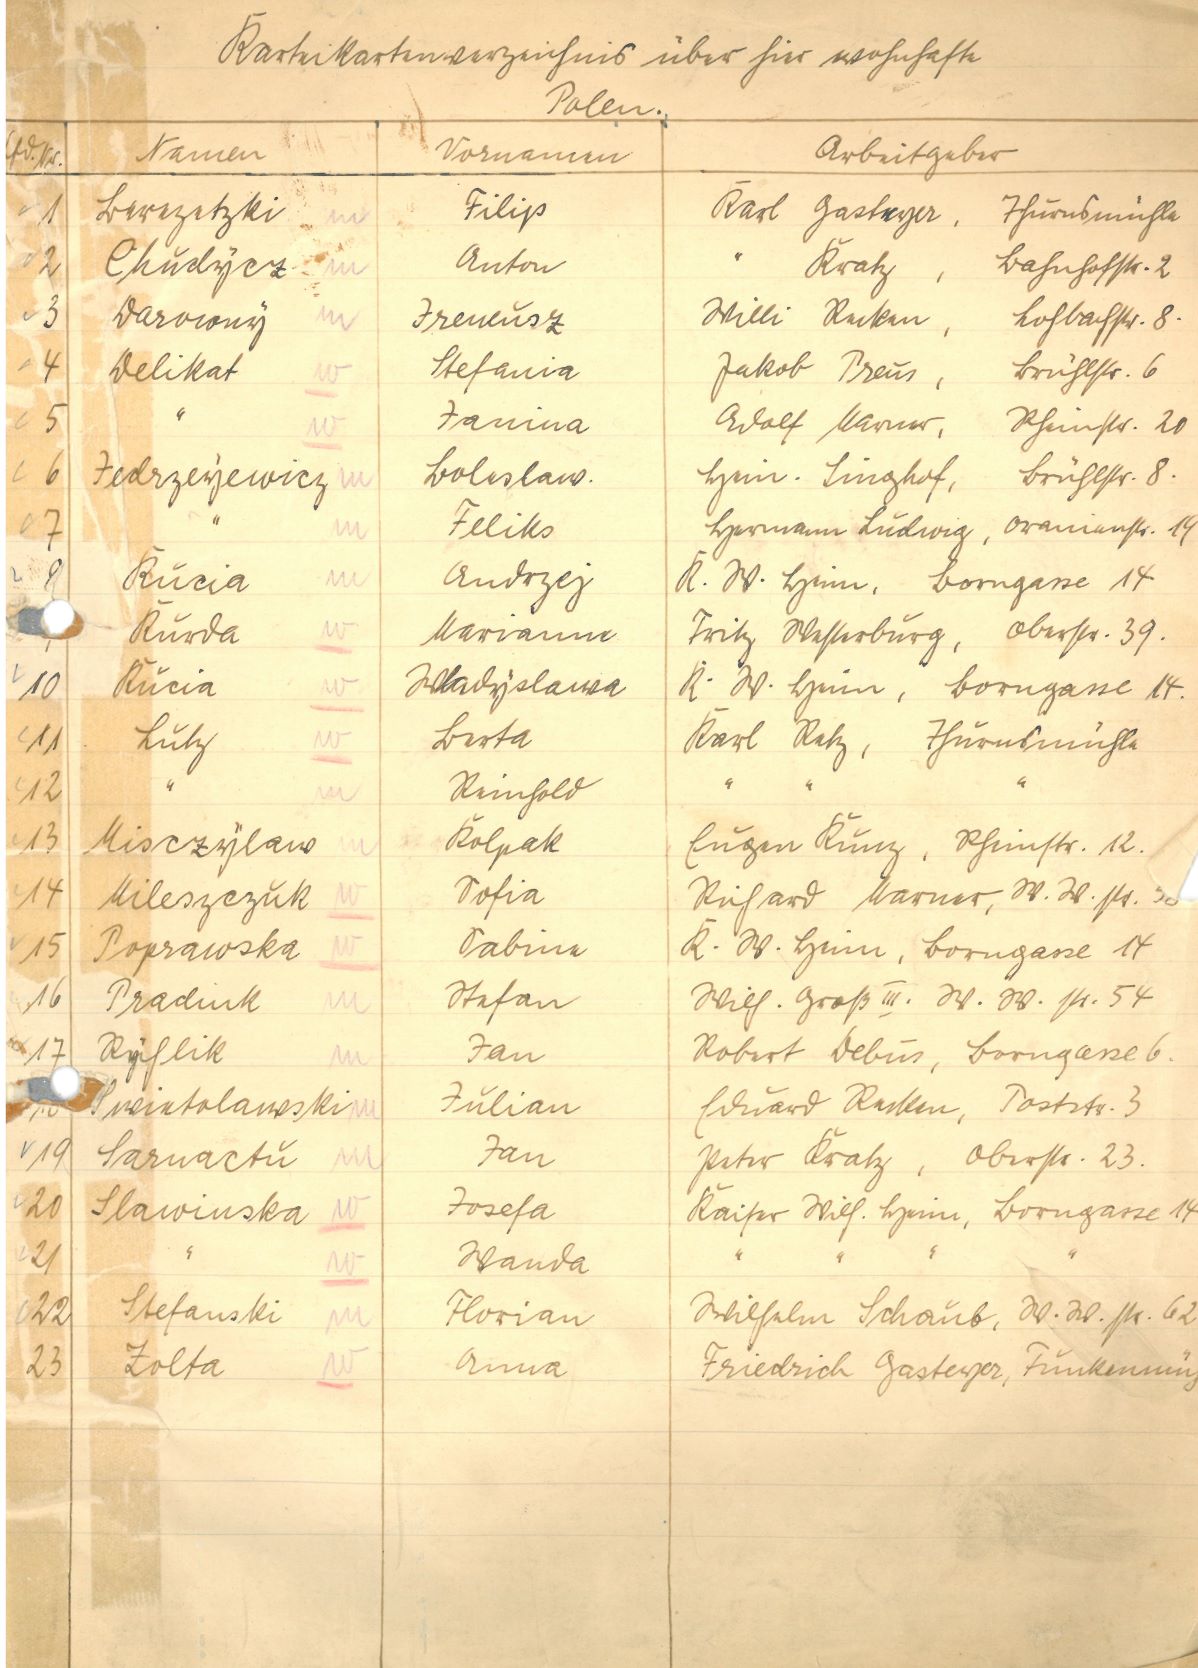 Karteikartenverzeichnis über hier wohnhafte
Polen.
Lfd. Nr. Namen Vornamen Arbeitgeber
1 Berezetzki m Filip Karl Gasteyer, Thurnsmühle
2 Chudÿcz m Anton " Kratz, Bahnhofstr. 2
3 Darownÿ m Ireneusz Willi Recken, Lohbachstr. 8.
4 Delikat w Stefania Jakob Preus, Brühlstr. 6
5 " w Janina Adolf Warner, Rheinstr. 20
6 Jedrzeÿewicz m Boleslaw. Hein. Singhof, Brühlstr. 8.
7 " m Feliks Hermann Ludwig, Oranienstr. 14
8 Kucia m Andrzej K. W. Heim, Borngasse 14
Kurda w Marianne Fritz Westerburg, Oberstr. 39.
10 Kucia w Wladÿslawa K. W. Heim, Borngasse 14.
11 Lutz w Berta Karl Retz, Thurnsmühle
12 " m Reinhold " " "
13 Misczÿlaw m Kolpak Eugen Kunz, Rheinstr. 12.
14 Mileszczuk w Sofia Richard Warner, W. W. str.
15 Poprawska w Sabine K. W. Heim, Borngasse 14
16 Pradink m Stefan Wilh. Groß III. W. W. str. 54
17 Rÿhlik m Jan Robert Debus, Borngasse 6.
Swietolawski m Julian Eduard Recken, Poststr. 3
19 Sarnactu m Jan Peter Kratz, Oberstr. 23.
20 Slawinska w Josefa Kaiser Wilh. Heim, Borngasse 14
21 " w Wanda " " " "
22 Stefanski m Florian Wilhelm Schaub, W. W. str. 62
23 Zolta w Anna Friedrich Gasteyer,